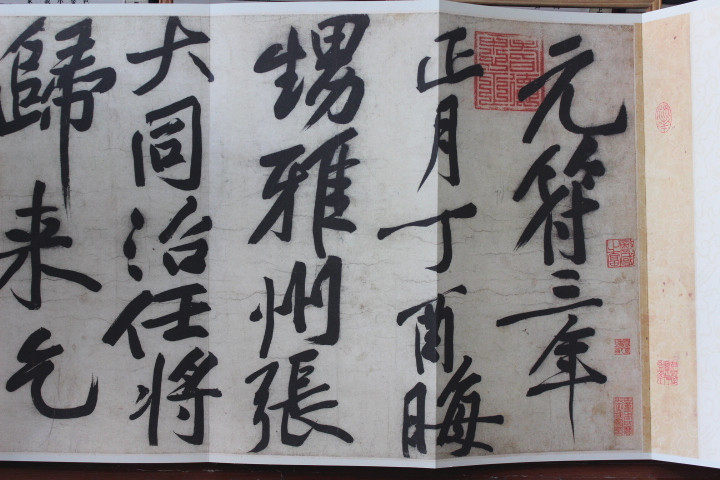 元符三年
正月丁酉晦
甥雅州張
大同治任将
歸来乞